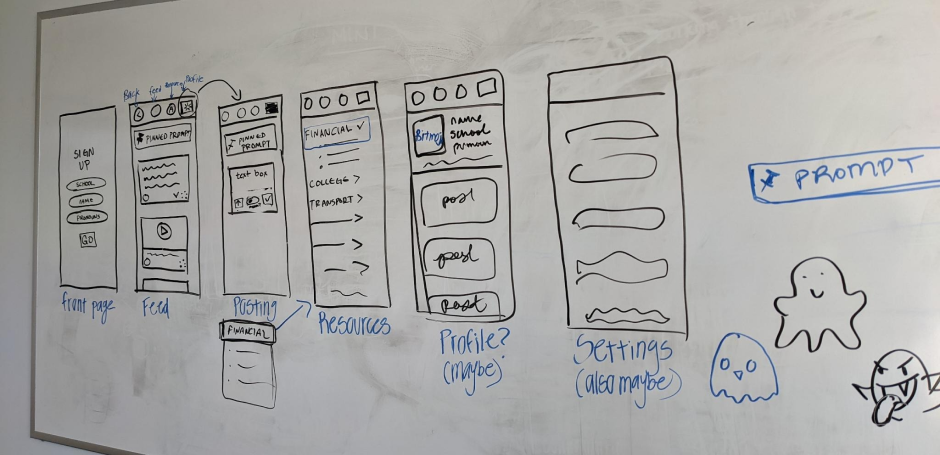 SIGN
UP
SCHOOL
NAME
PRONOUNS
GO
front page
Back
feed
Profile
PINNED PROMPT
Feed
PINNED
PROMPT
text box
Posting
FINANCIAL
FINANCIAL ✓
COLLEGE >
TRANSPORT >
Resources
Bitmoji
name
school
pronoun
post
post
post
Profile?
(maybe)
Settings
(also maybe)
PROMPT